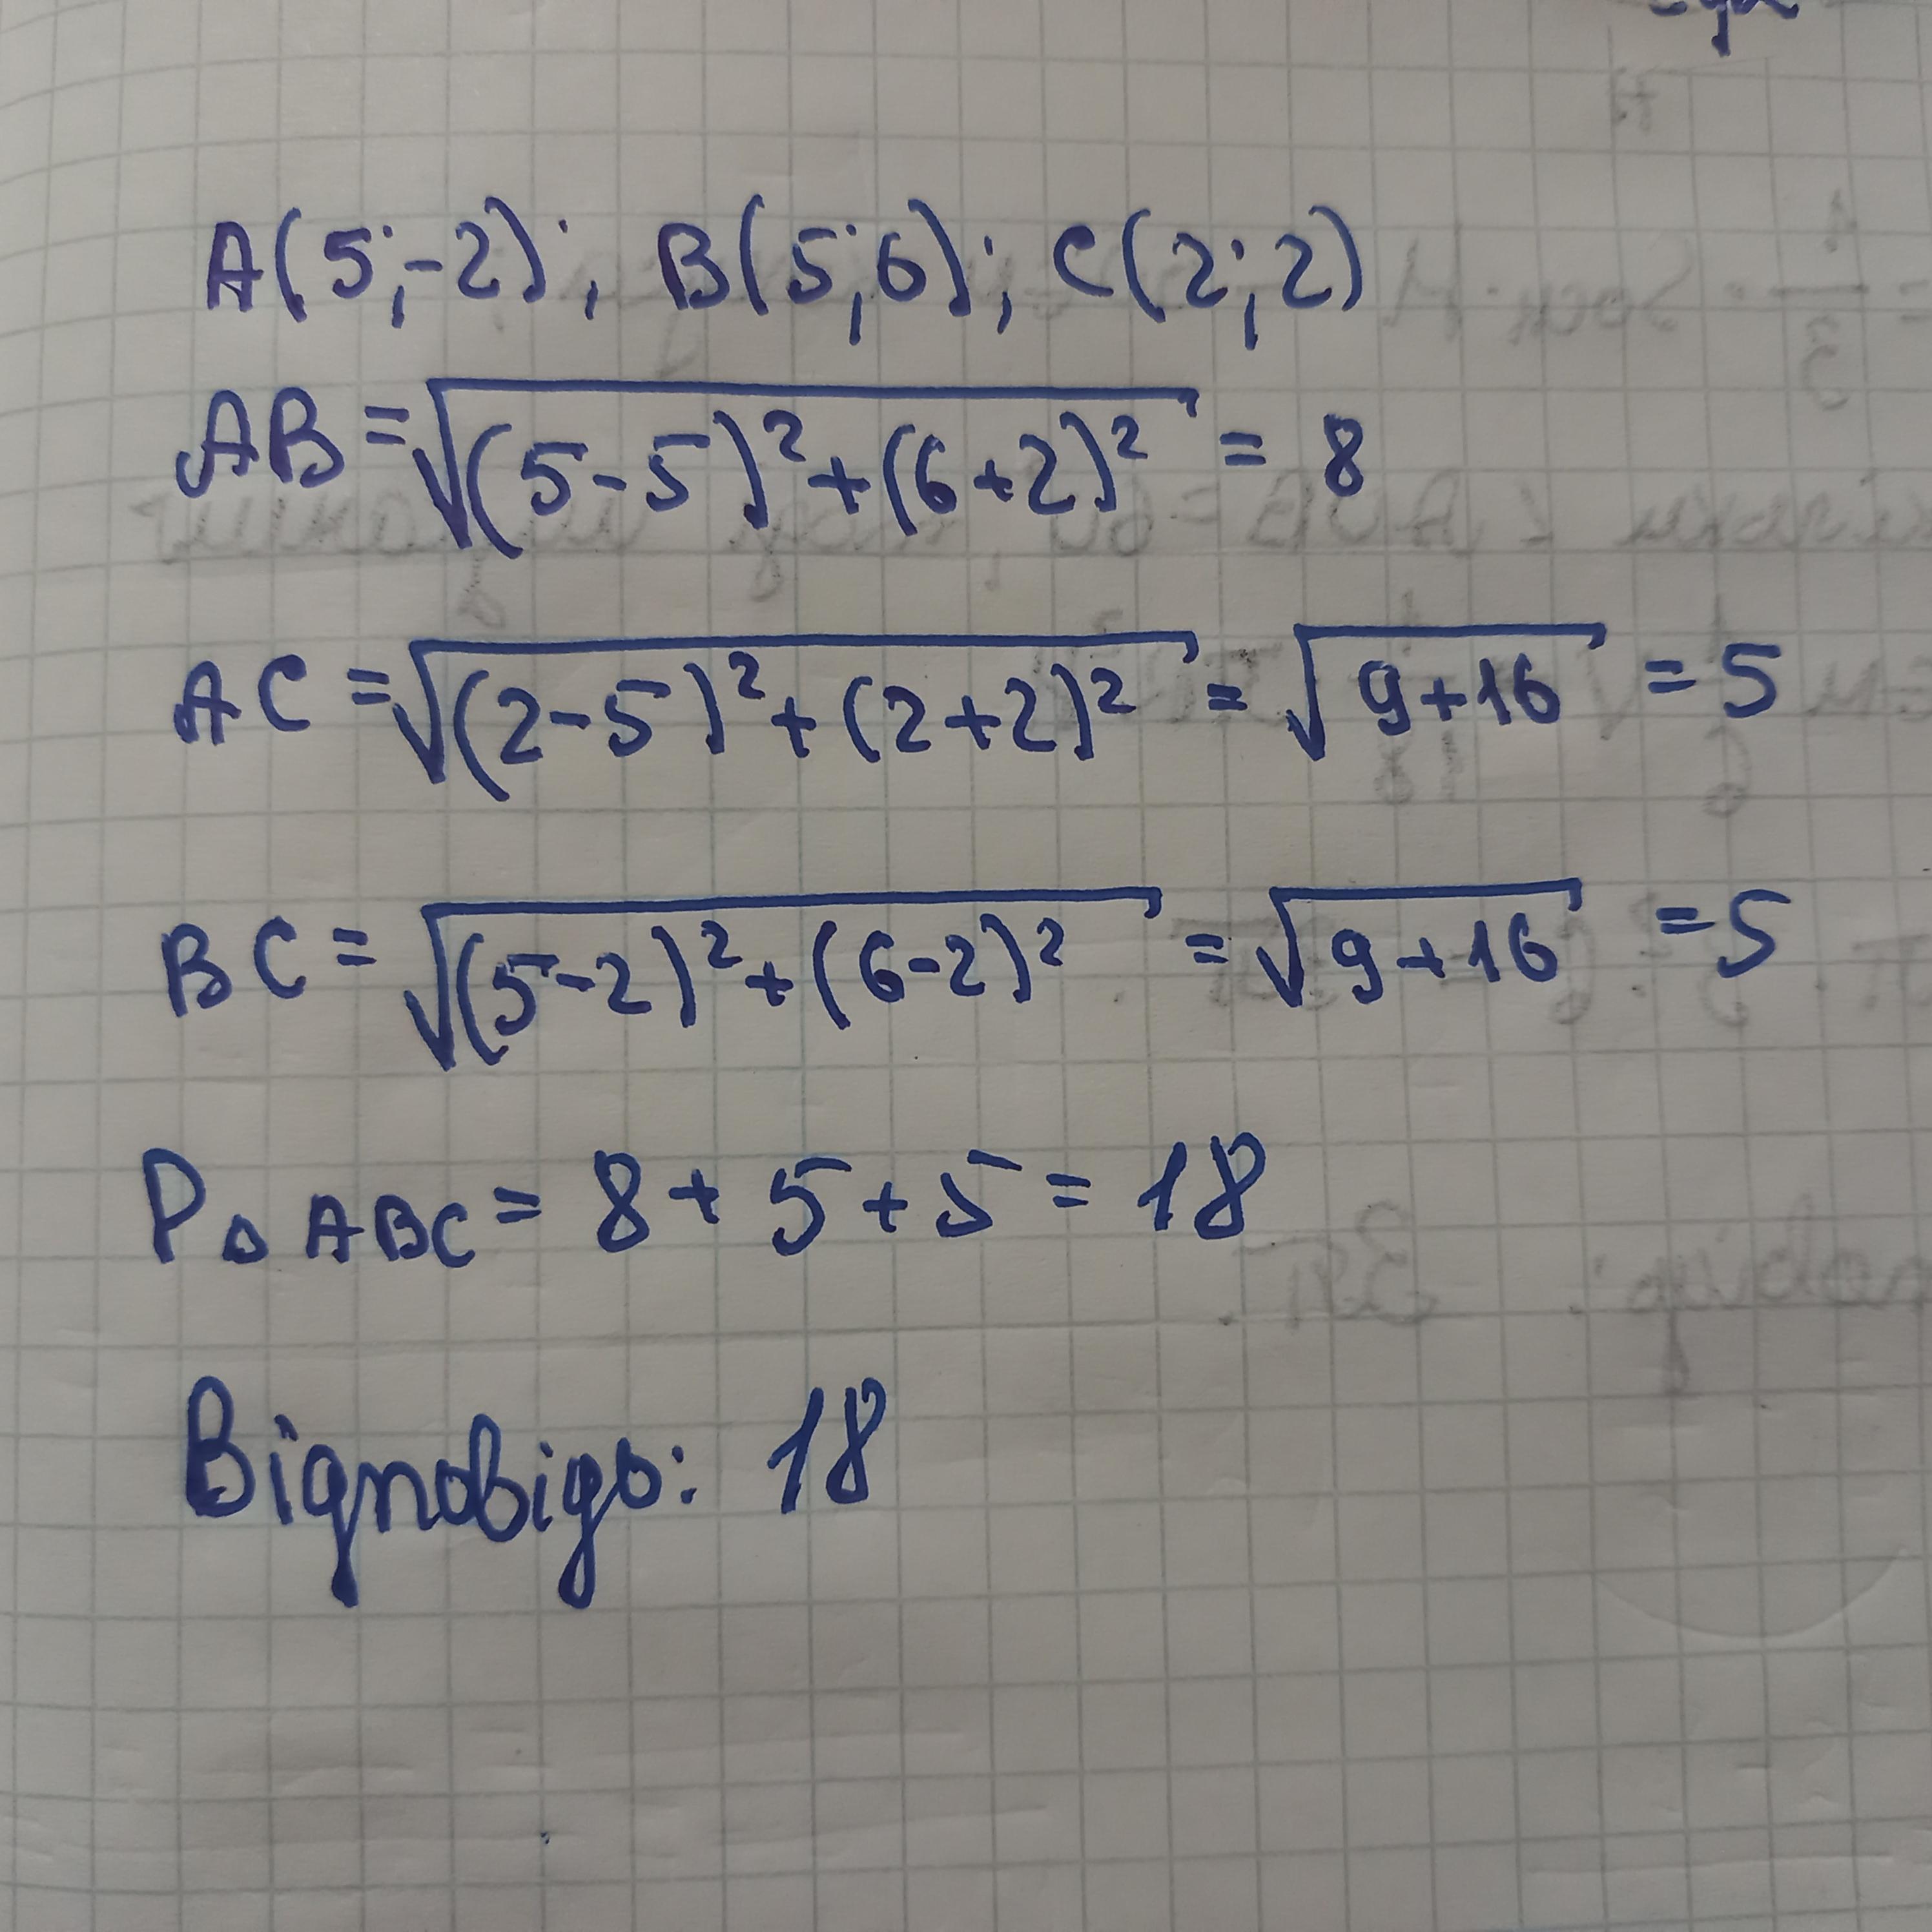 A(5;-2); B(5;6); C(2;2)
AB = √((5-5)²+(6+2)²) = 8
AC = √((2-5)²+(2+2)²) = √(9+16) = 5
BC = √((5-2)²+(6-2)²) = √(9+16) = 5
P△ABC = 8+5+5=18
Відповідь: 18